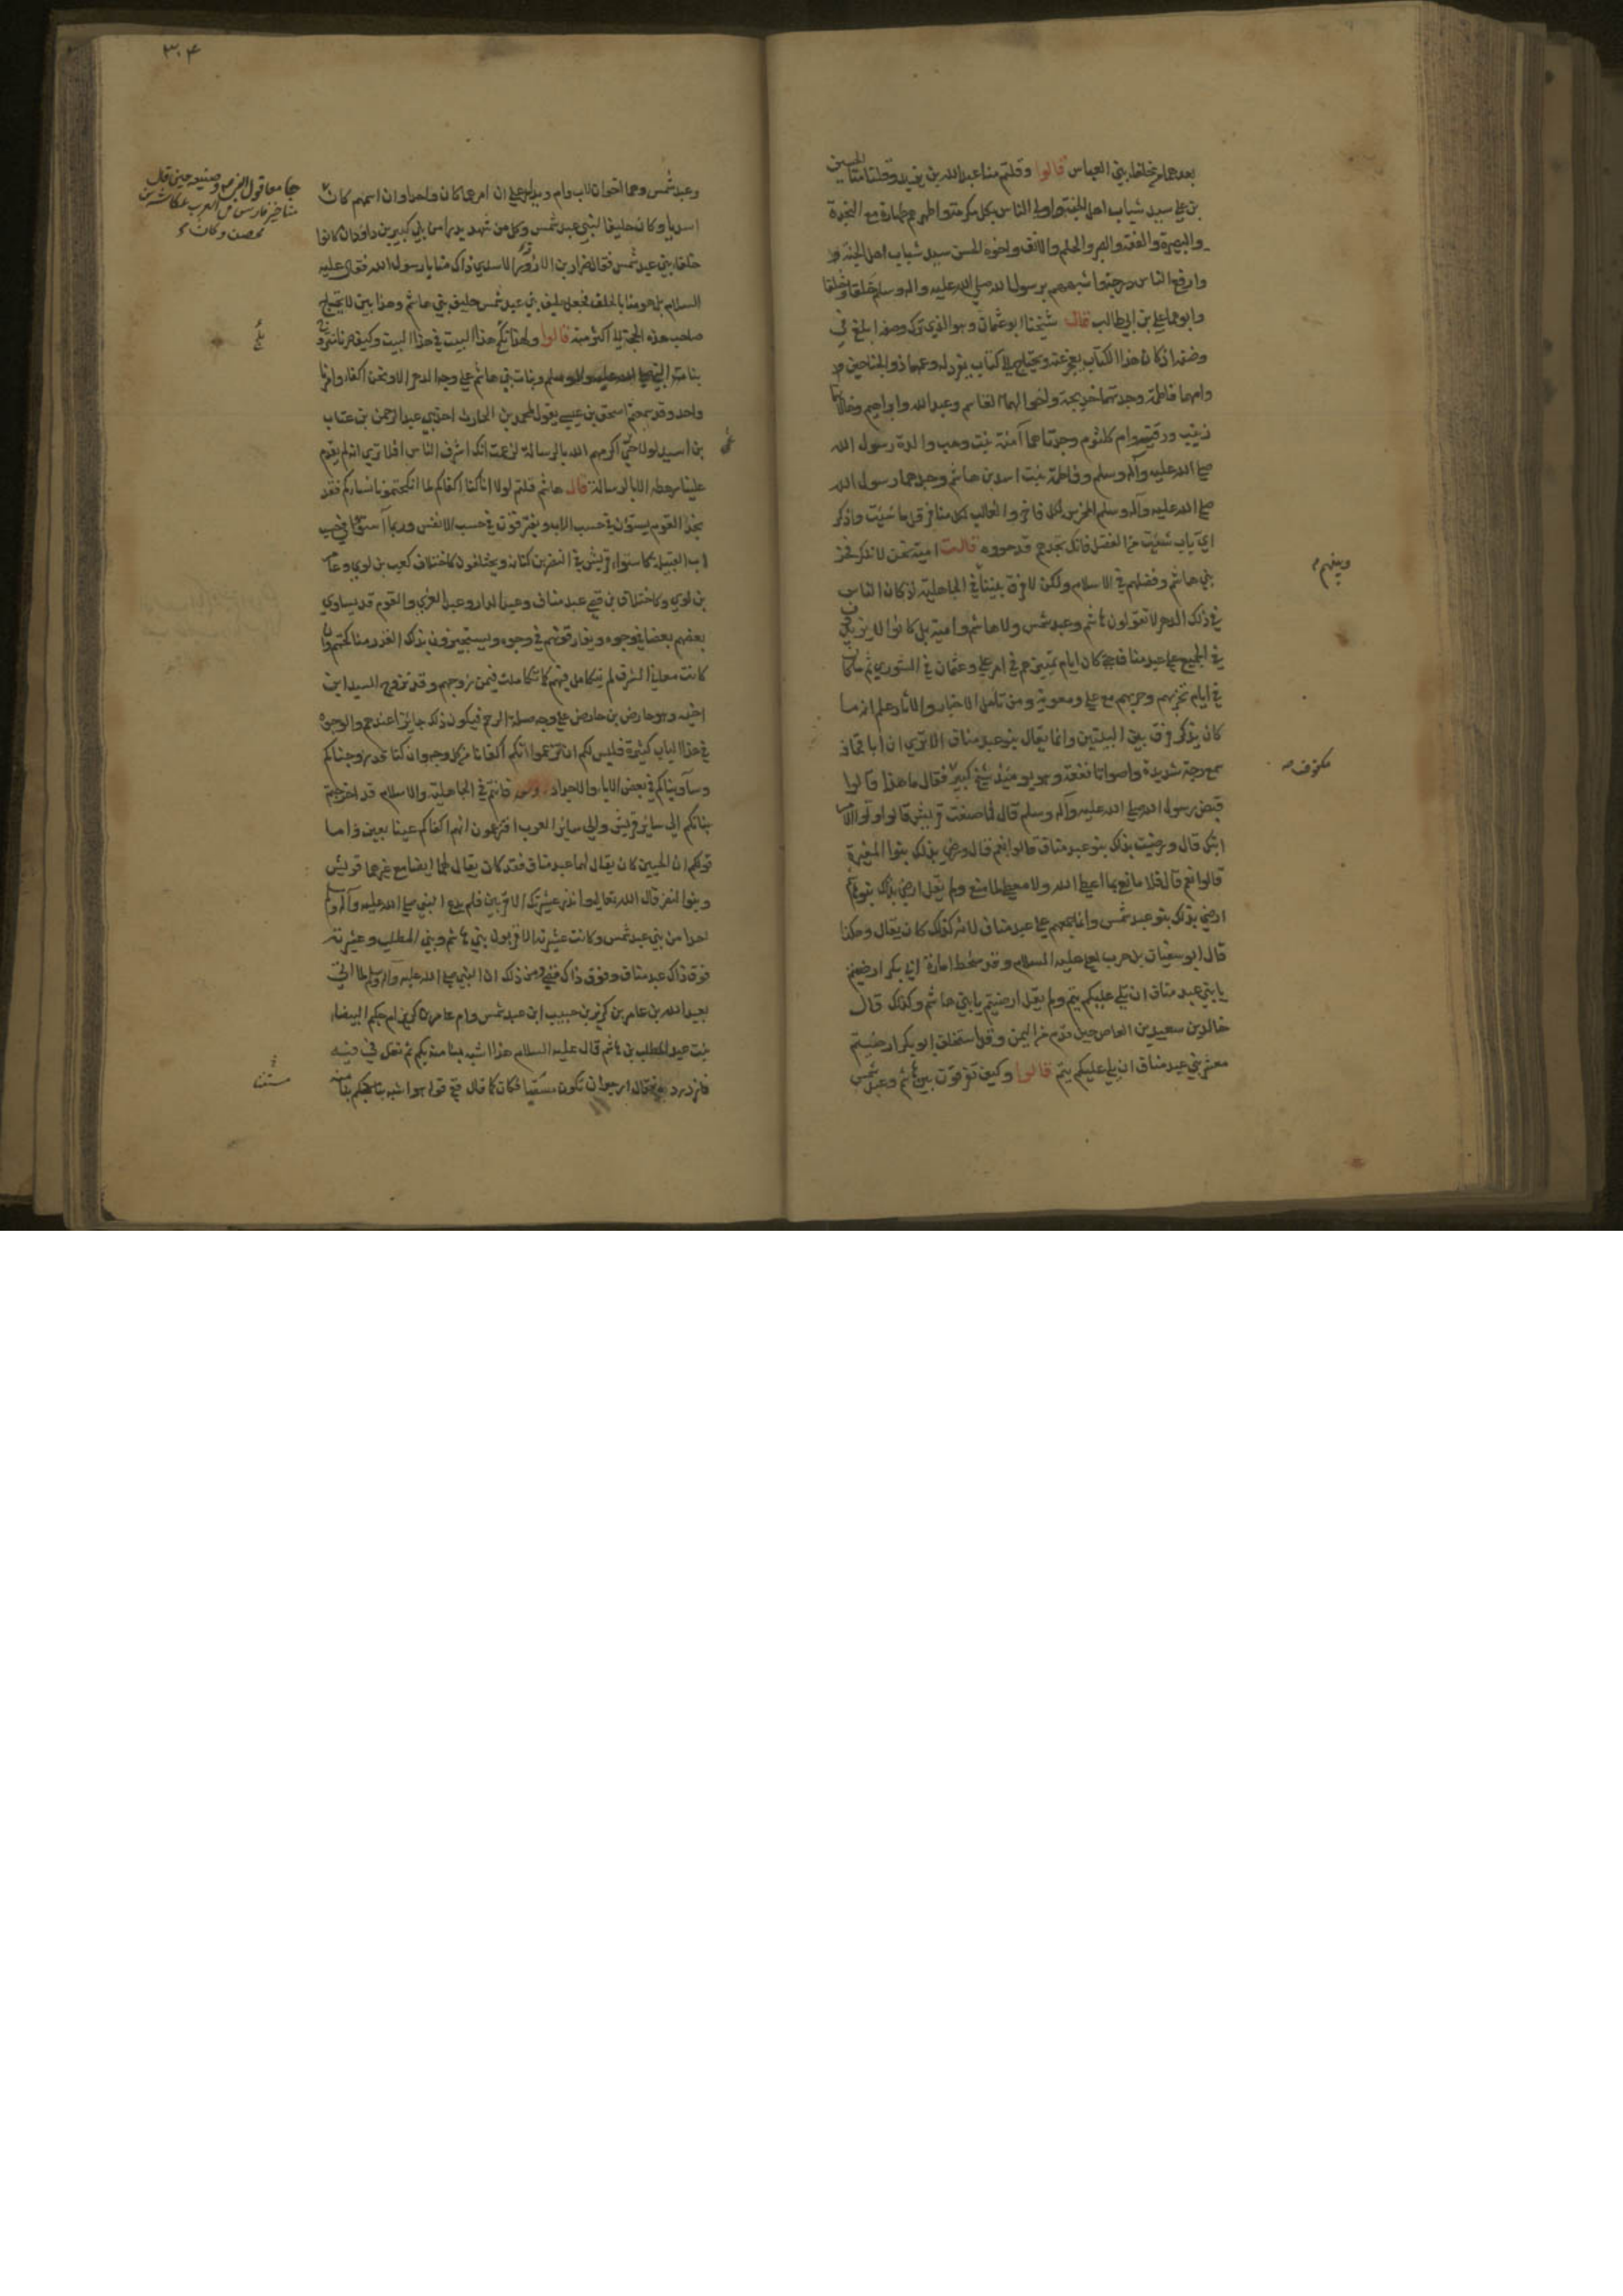 بعدهما من خلفاء بني العباس قالوا وقلتم منا عبد الله بن يزيد وقلنا منا الحسين
بن علي سيد شباب اهل الجنة واولى الناس بكل مكرمة واطهرهم طهارة مع النجدة
والبصيرة والفقه والصبر والحلم والانف واخوه الحسن سيد شباب اهل الجنة
وارفع الناس درجة واشبههم برسول الله صلي الله عليه واله وسلم خلقا وخلقا
وابوهما علي بن ابي طالب قال شيخنا ابو عثمان وهو الذي ترك وصفه ابلغ في
وصفه اذ كان هذا الكتاب يعجز عنه ويحتاج الي كتاب يفرد له وعمهما ذو الجناحين
وامهما فاطمة وجدتهما خديجة واخوالهما القاسم وعبد الله وابراهيم وخالاتهما
زينب ورقية وام كلثوم وجدتاهما آمنة بنت وهب والدة رسول الله
صلي الله عليه وآله وسلم وفاطمة بنت اسد بن هاشم وجدهما رسول الله
صلي الله عليه وآله وسلم المخرس لكل فاخر والغالب لكل منافر قل ما شئت واذكر
اي باب شئت من الفضل فانك تجدهم قد حووه قالت امية نحن لا ننكر فخر
بني هاشم وفضلهم في الاسلام ولكن لا فرق بيننا في الجاهلية اذ كان الناس
في ذلك الدهر لا تقولون هاشم وعبد شمس ولا هاشم وامية بل كانوا لا يزيدون
في الجميع علي عبد مناف حتي كان ايام تميزهم في امر علي وعثمان في الشوري ثم ما كان
في ايام تحزبهم وحربهم مع علي ومعوية ومن تأمل الاخبار والآثار علم انه ما
كان يذكر فرق بين البيتين وانما يقال بنو عبد مناف الا تري ان ابا قحافة
سمع رجة شديدة واصواتا مرتفعة وهو يومئذ شيخ كبير فقال ما هذا قالوا
قبض رسول الله صلي الله عليه وآله وسلم قال فما صنعت قريش قالوا ولوا الامر
ابنك قال ورضيت بذلك بنو عبد مناف قالوا نعم قال ورضي بذلك بنوا المغيرة
قالوا نعم قال فلا مانع لما اعطي الله ولا معطي لما منع ولم يقل ارضي بذلك بنو هاشم
ارضي بذلك بنو عبد شمس وانما جمعهم علي عبد مناف لانه كذلك كان يقال وهكذا
قال ابو سفيان بن حرب لعلي عليه السلام وقد سخط امارة ابي بكر ارضيتم
يا بني عبد مناف ان تلي عليكم تيم ولم يقل ارضيتم يا بني هاشم وكذلك قال
خالد بن سعيد بن العاص حين قدم من اليمن وقد استخلف ابو بكر ارضيتم
معشر بني عبد مناف ان يلي عليكم تيم قالوا وكيف تفرقون بين هاشم وعبد شمس
وبينهم
مكفوف
٣٠٤
وعبد شمس وهما اخوان لاب وام ويدل علي ان امرهما كان واحدا وان اسمهم كان
جامعا قول النبي وصنيعه حين قال
منا خير فارس في العرب عكاشة بن
محصن وكان
اسديا وكان حليفا لبني عبد شمس وكل من شهد بدرا من بني كبير بن داودان كانوا
حلفاء بني عبد شمس فقال ضرار بن الازور الاسدي ذاك منا يا رسول الله فقال عليه
السلام بل هو منا بالحلف فجعل حليف بني عبد شمس حليف بني هاشم وهذا بين لا يحتاج
صاحب هذه الحجة الي اكثر منه قالوا ولهذا نكح هذا البيت في هذا البيت وكيف صرنا نتزوج
بنات النبي صلي الله عليه واله وسلم وبنات بني هاشم علي وجه الدهر الا ونحن اكفاء وامرنا
واحد وقد سمعتم اسحق بن عيسي يقول لمحمد بن الحارث احد بني عبد الرحمن بن عتاب
بن اسيد لولا حي اكرمهم الله بالرسالة لزعمت انك اشرف الناس افلا تري انه لم يقدم
علينا رهطه الا بالرسالة قال هاشم قلتم لولا اناكنا اكفاكم لما انكحتمونا نساءكم فقد
نجد القوم يستوون في حسب الاب ويفترقون في حسب الانفس وربما استووا في حسب
اب القبيلة كاستواء قريش في النضر بن كنانة ويختلفون كاختلاف كعب بن لوي وعامر
بن لوي وكاختلاف بن قصي عبد مناف وعبد الدار وعبد العزي والقوم قد يساوي
بعضهم بعضا في وجوه ويفارقونهم في وجوه ويستجيزون بذلك القدر مناكحتهم وان
كانت معاني الشرف لم تتكامل فيهم كما تكاملت فيمن زوجهم وقد تزوج السيد ابن
اخيه وهو حارض بن حارض علي وجه صلة الرحم فيكون ذلك جائزا عندهم والوجوه
في هذا الباب كثيرة فليس لكم ان تزعموا انكم اكفانا من كل وجه وان كنا قد زوجناكم
وساويناكم في بعض الاباء والاجداد وبعد فانتم في الجاهلية والاسلام قد اخرجتم
بناتكم الي سائر قريش والي سائر العرب افتزعمون انهم اكفاكم عينا بعين واما
قولكم ان الحيين كان يقال لهما عبد مناف فقد كان يقال لهما ايضا مع غيرهما قريش
وبنوا النضر قال الله تعالي وانذر عشيرتك الاقربين فلم يدع النبي صلي الله عليه وآله وسلم
احدا من بني عبد شمس وكانت عشيرته الاقربون بني هاشم وبني المطلب وعشيرته
فوق ذاك عبد مناف وفوق ذاك قصي ومن ذلك ان النبي صلي الله عليه وآله وسلم لما اتي
بعبد الله بن عامر بن كريز بن حبيب ابن عبد شمس وام عامر بن كريز ام حكيم البيضاء
بنت عبد المطلب بن هاشم قال عليه السلام هذا اشبه بنا منه بكم ثم تفل في فيه
فازدرده فقال ارجوان تكون مسقيا فكان كما قال ففي قوله هو اشبه بنا منه بكم